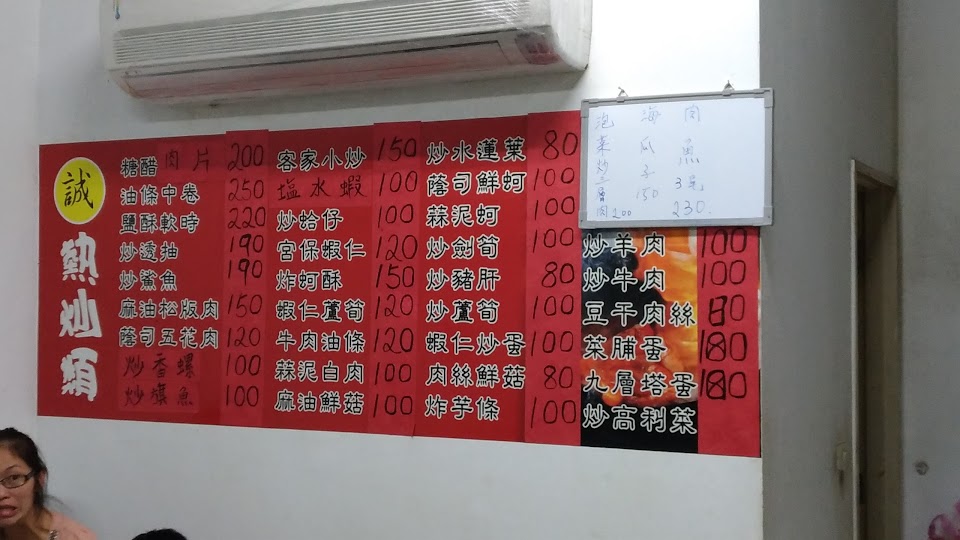 誠
熱炒類
糖醋肉片 200
油條中卷 250
鹽酥軟時 220
炒透抽 190
炒鯊魚 190
麻油松版肉 150
蔭司五花肉 120
炒香螺 100
炒爆魚 100
客家小炒 150
塩水蝦 100
炒蛤仔 100
宮保蝦仁 120
炸蚵酥 150
蝦仁蘆筍 120
牛肉油條 120
蒜泥白肉 100
麻油鮮菇 100
炒水蓮葉 80
蔭司鮮蚵 100
蒜泥蚵 100
炒劍筍 100
炒豬肝 80
炒蘆筍 100
蝦仁炒蛋 100
肉絲鮮菇 80
炸芋條 100
炒羊肉 100
炒牛肉 100
豆干肉絲 80
菜脯蛋
九層塔蛋
炒高利菜
泡菜炒三層肉 200
海瓜子 150
肉魚 3尾 230.